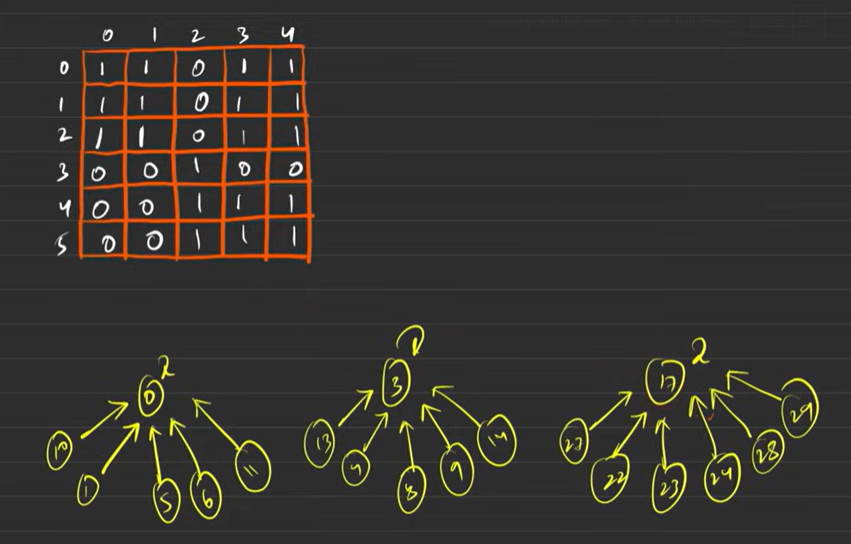 0 1 2 3 4
0 1 1 0 1 1
1 1 1 0 1 1
2 1 1 0 1 1
3 0 0 1 0 0
4 0 0 1 1 1
5 0 0 1 1 1
2
0
10 1 5 6 11
1
3
13 4 8 9 14
2
17
27 22 23 24 28 29